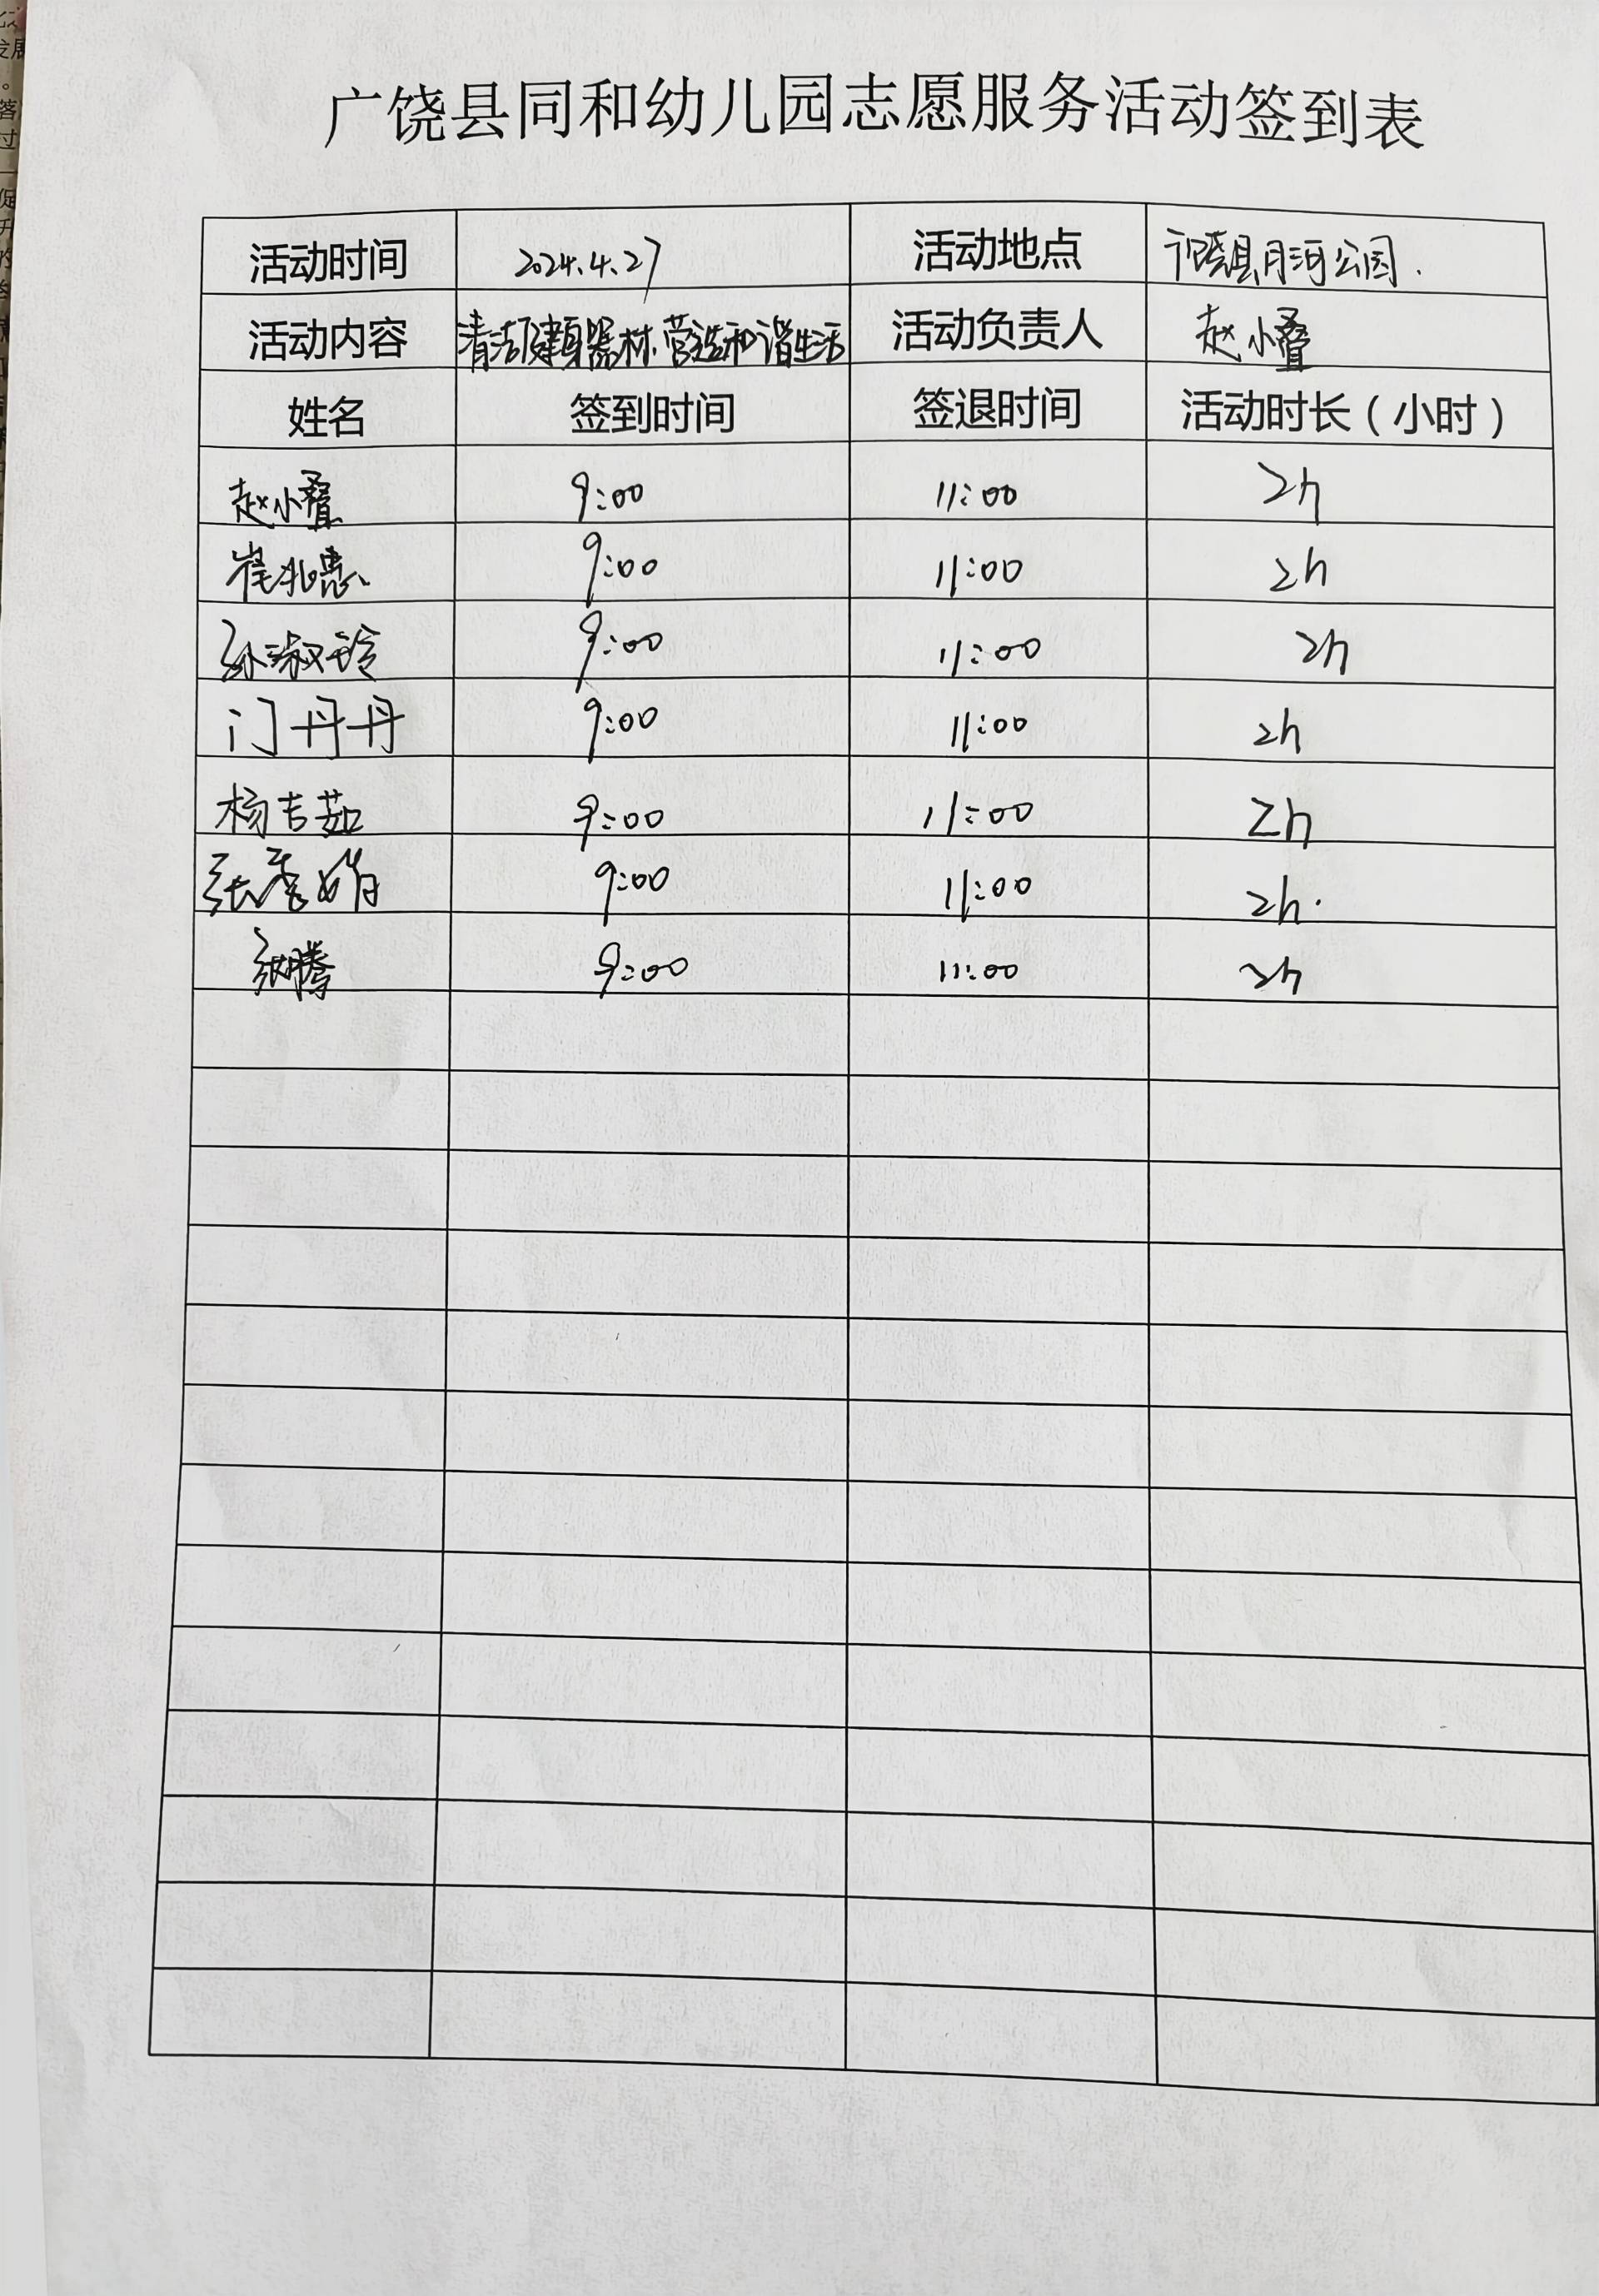 广饶县同和幼儿园志愿服务活动签到表
活动时间 2024.4.27 活动地点 广饶县月河公园.
活动内容 清洁健身器材.营造和谐生活 活动负责人 赵小叠
姓名 签到时间 签退时间 活动时长（小时）
赵小叠 9:00 11:00 2h
崔兆惠 9:00 11:00 2h
孙淑玲 9:00 11:00 2h
门丹丹 9:00 11:00 2h
杨吉茹 9:00 11:00 2h
张秀娟 9:00 11:00 2h.
腾 9:00 11:00 2h